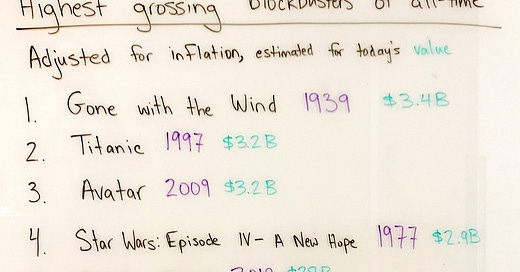 Highest grossing blockbusters of all-time
Adjusted for inflation, estimated for today's value
1. Gone with the Wind 1939 $3.4B
2. Titanic 1997 $3.2B
3. Avatar 2009 $3.2B
4. Star Wars: Episode IV - A New Hope 1977 $2.9B